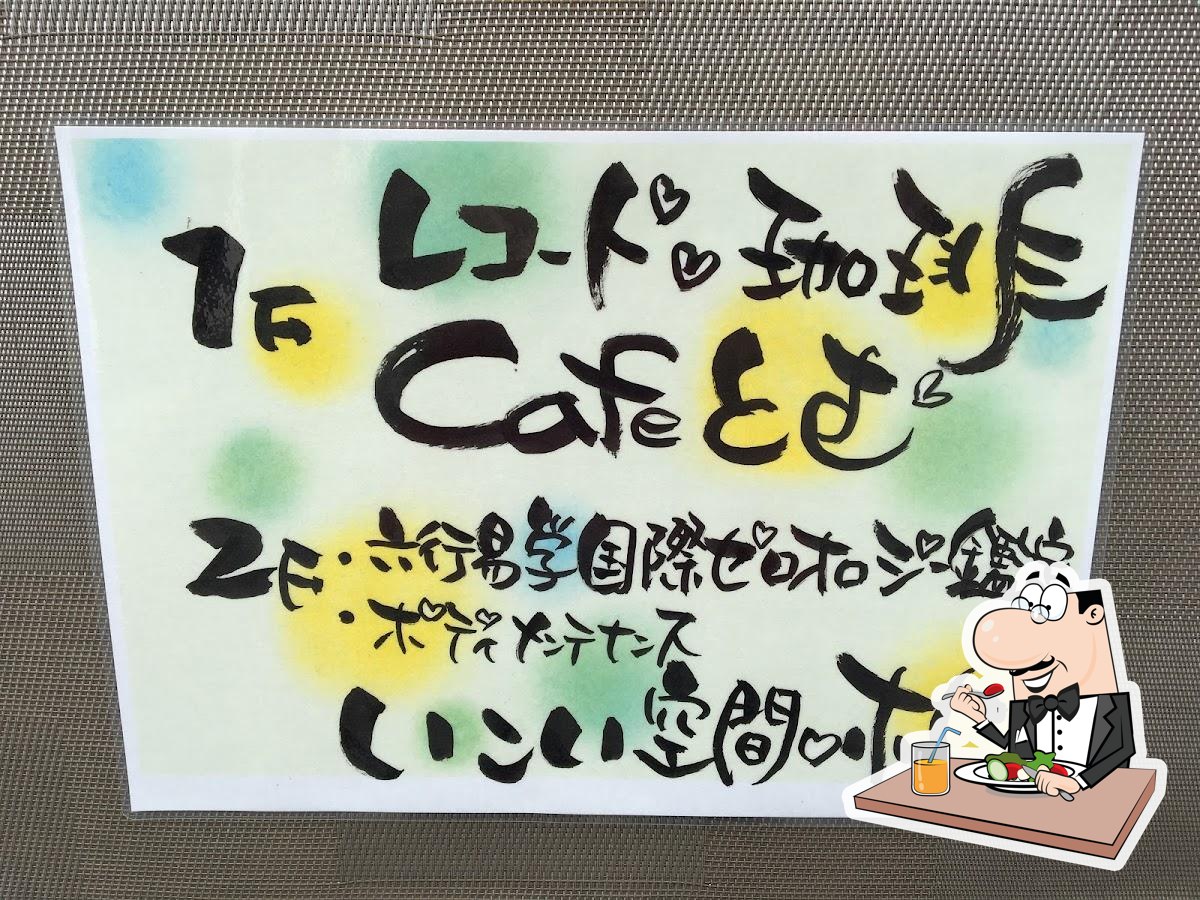 1F レコード 珈琲
Cafe とむ
2F・六行易学国際ゼロオロジー鑑定
・ボディメンテナンス
いこい空間